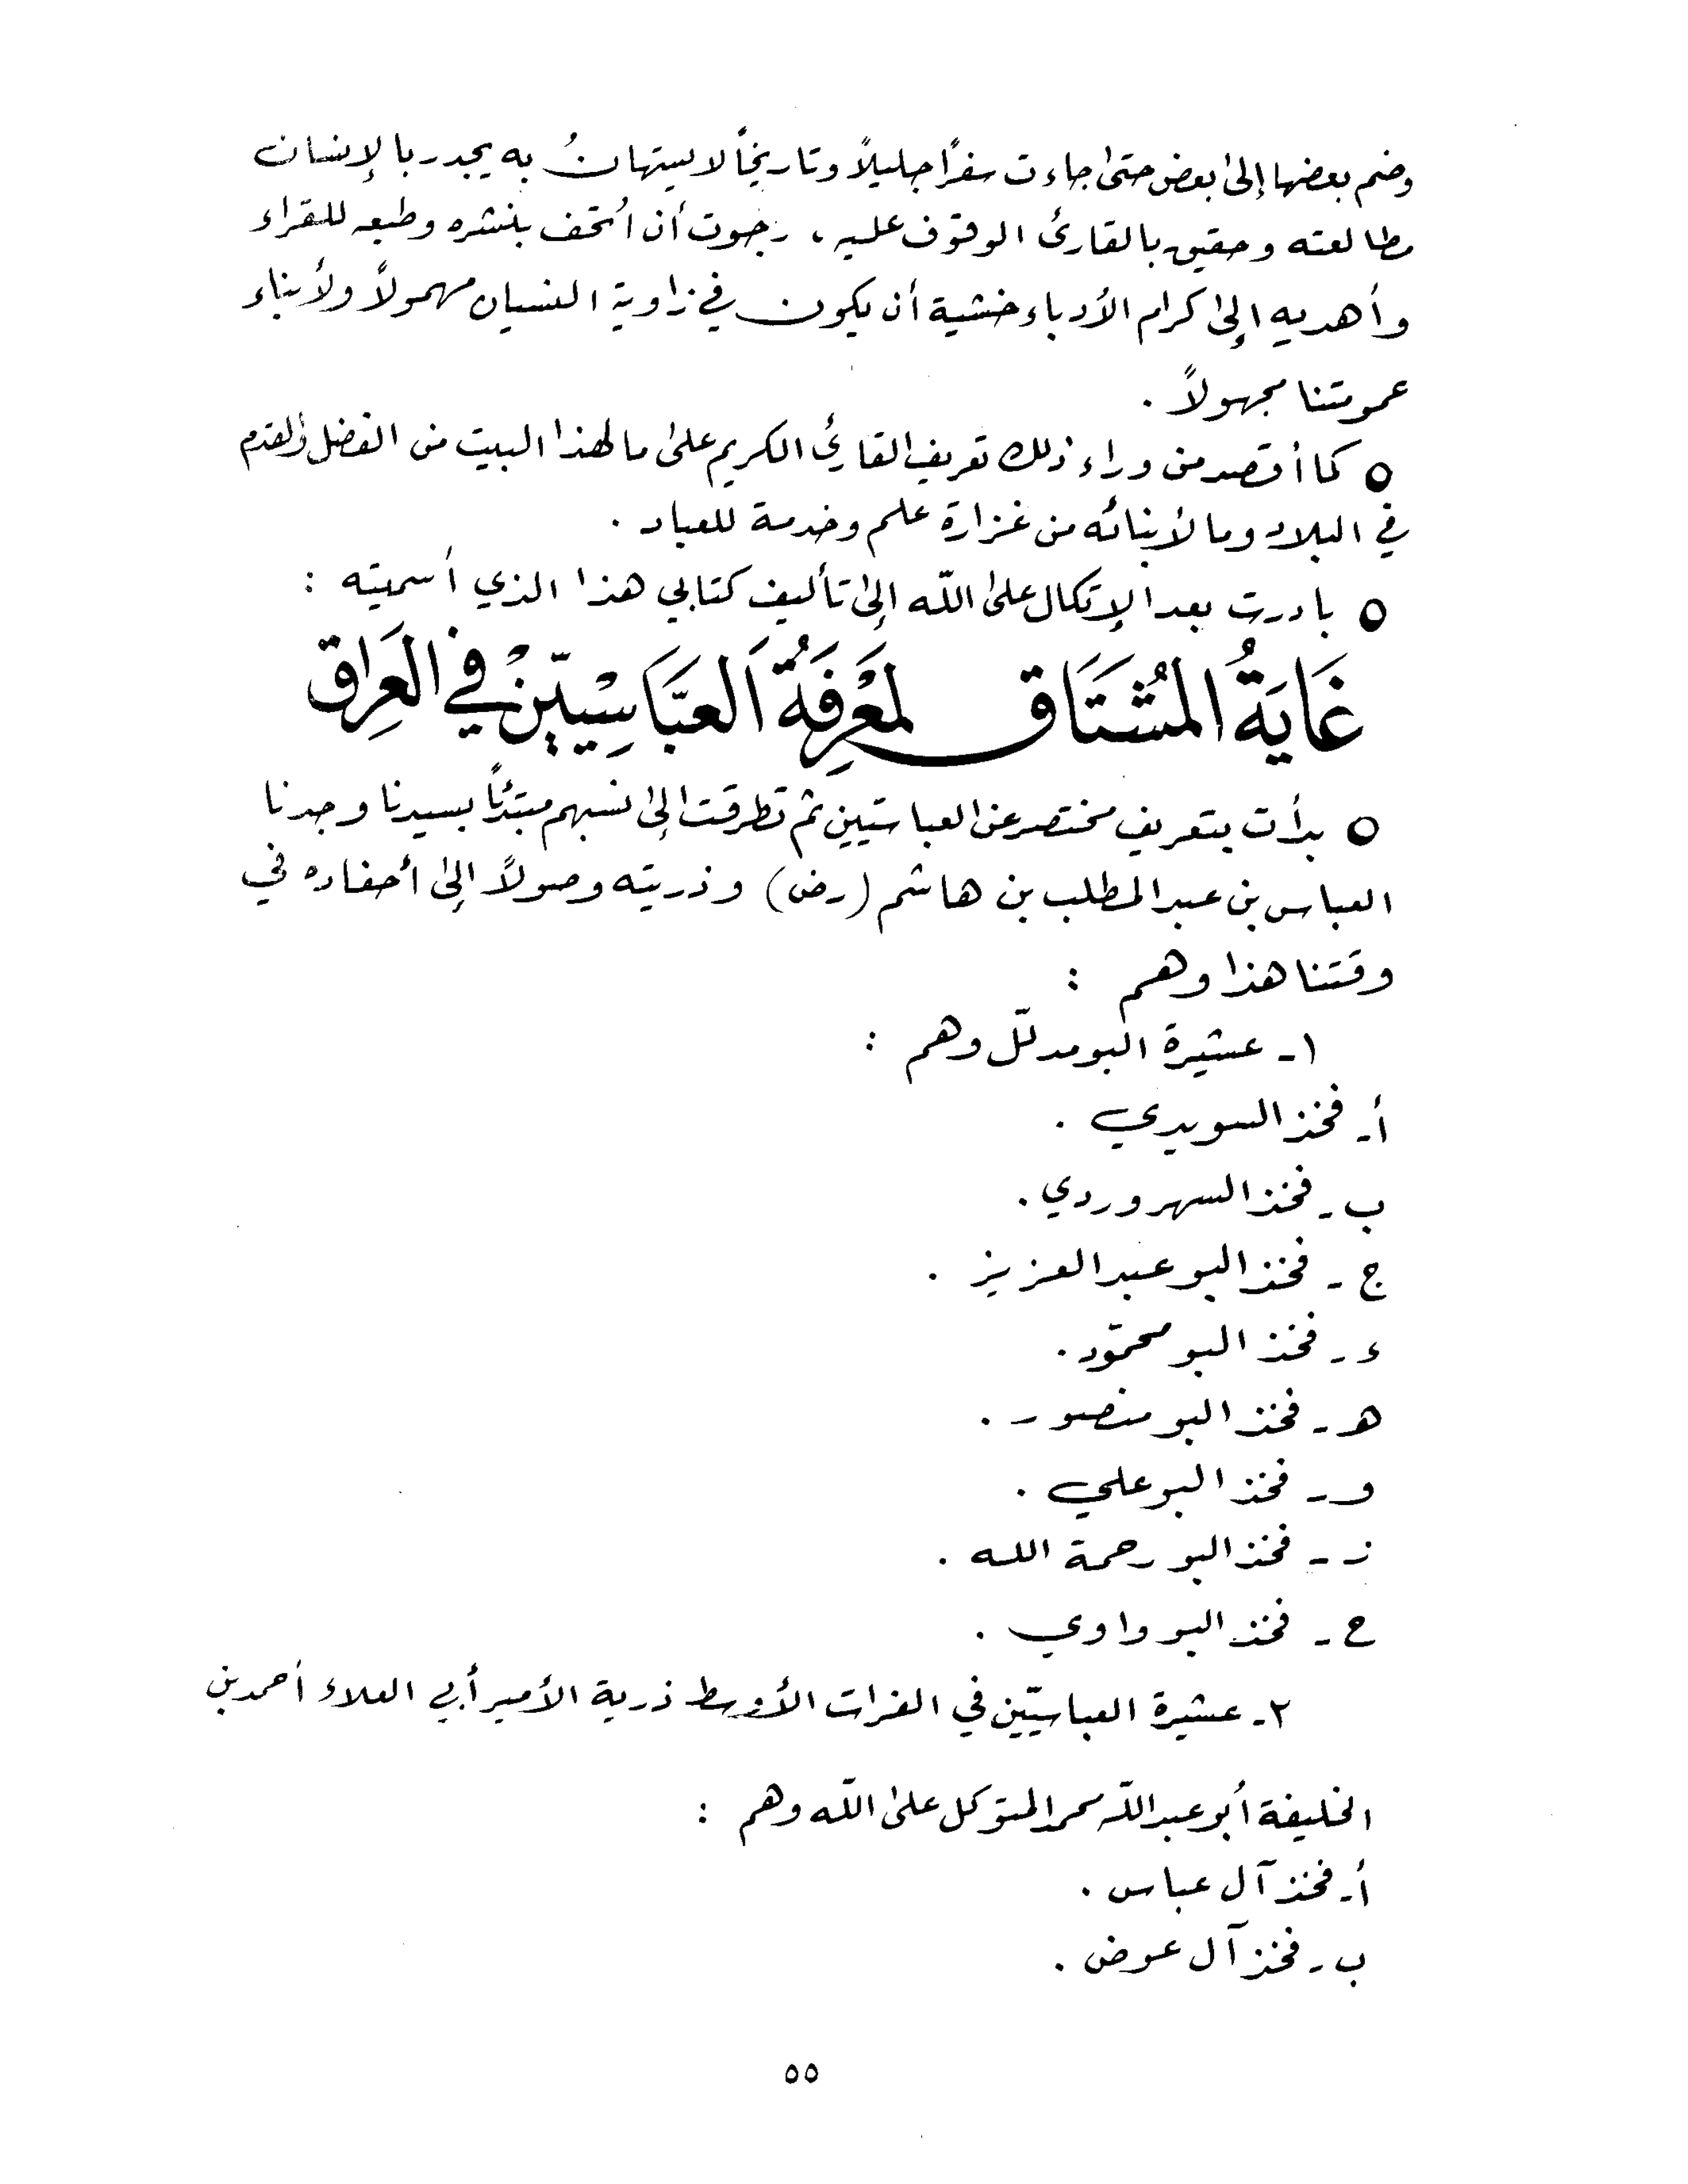 وضم بعضها إلى بعض حتى جاءت سفرًا جليلاً وتاريخًا لا يستهانُ به يجدر بالإنسان
مطالعته وحقيق بالقارئ الوقوف عليه ، رجوت أن أتحف بنشره وطبعه للقراء
وأهديه إلى كرام الأدباء خشية أن يكون في زاوية النسيان مهمولاً ولأبناء
عمومتنا مجهولاً .
o كما أقصد من وراء ذلك تعريف القارئ الكريم على ما لهذا البيت من الفضل والقدم
في البلاد وما لأبنائه من غزارة علم وخدمة للعباد .
o بادرت بعد الإتكال على اللّه إلى تأليف كتابي هذا الذي أسميته :
غَايَةُ المُشتَاق لمَعْرِفَةُ العبَّاسِيّينْ في العِرَاق
o بدأت بتعريف مختصر عن العباسيّين ثم تطرقت إلى نسبهم مبتدئًا بسيدنا وجدنا
العباس بن عبد المطلب بن هاشم (رض) وذريته وصولاً إلى أحفاده في
وقتنا هذا وهم :
١ـ عشيرة البو مدلّل وهم :
أ ـ فخذ السويدي .
ب ـ فخذ السهروردي .
ج ـ فخذ البو عبد العزيز .
ء ـ فخذ البو محمّود .
هـ ـ فخذ البو منصور .
و ـ فخذ البو علي .
ز ـ فخذ البو رحمة الله .
ح ـ فخذ البو واوي .
٢ـ عشيرة العباسيّين في الفرات الأوسط ذرية الأمير أبي العلاء أحمد بن
الخليفة أبو عبد اللّه محمد المتوكل على اللّه وهم :
أ ـ فخذ آل عباس .
ب ـ فخذ آل عوض .
٥٥